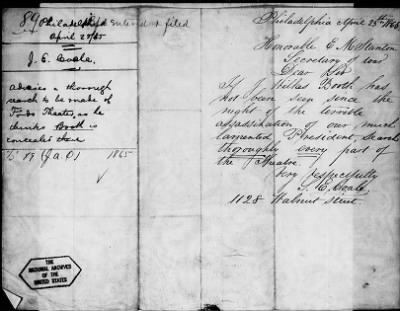 89
Philadelphia
April 25/65
Entered & filed
J. E. Coale.
advises a thorough
search to be made of
Fords Theater, as he
thinks Booth is
concealed there
1865
Philadelphia April 25th 1865
Honorable E. M. Stanton
Secretary of War
Dear Sir
If J Wilkes Booth has
not been seen since the
night of the terrible
assassination of our much
lamented President search
thoroughly every part of
the Theatre.
Very respectfully
S. E. Coale
1128 Walnut street.
THE
NATIONAL ARCHIVES
OF THE
UNITED STATES